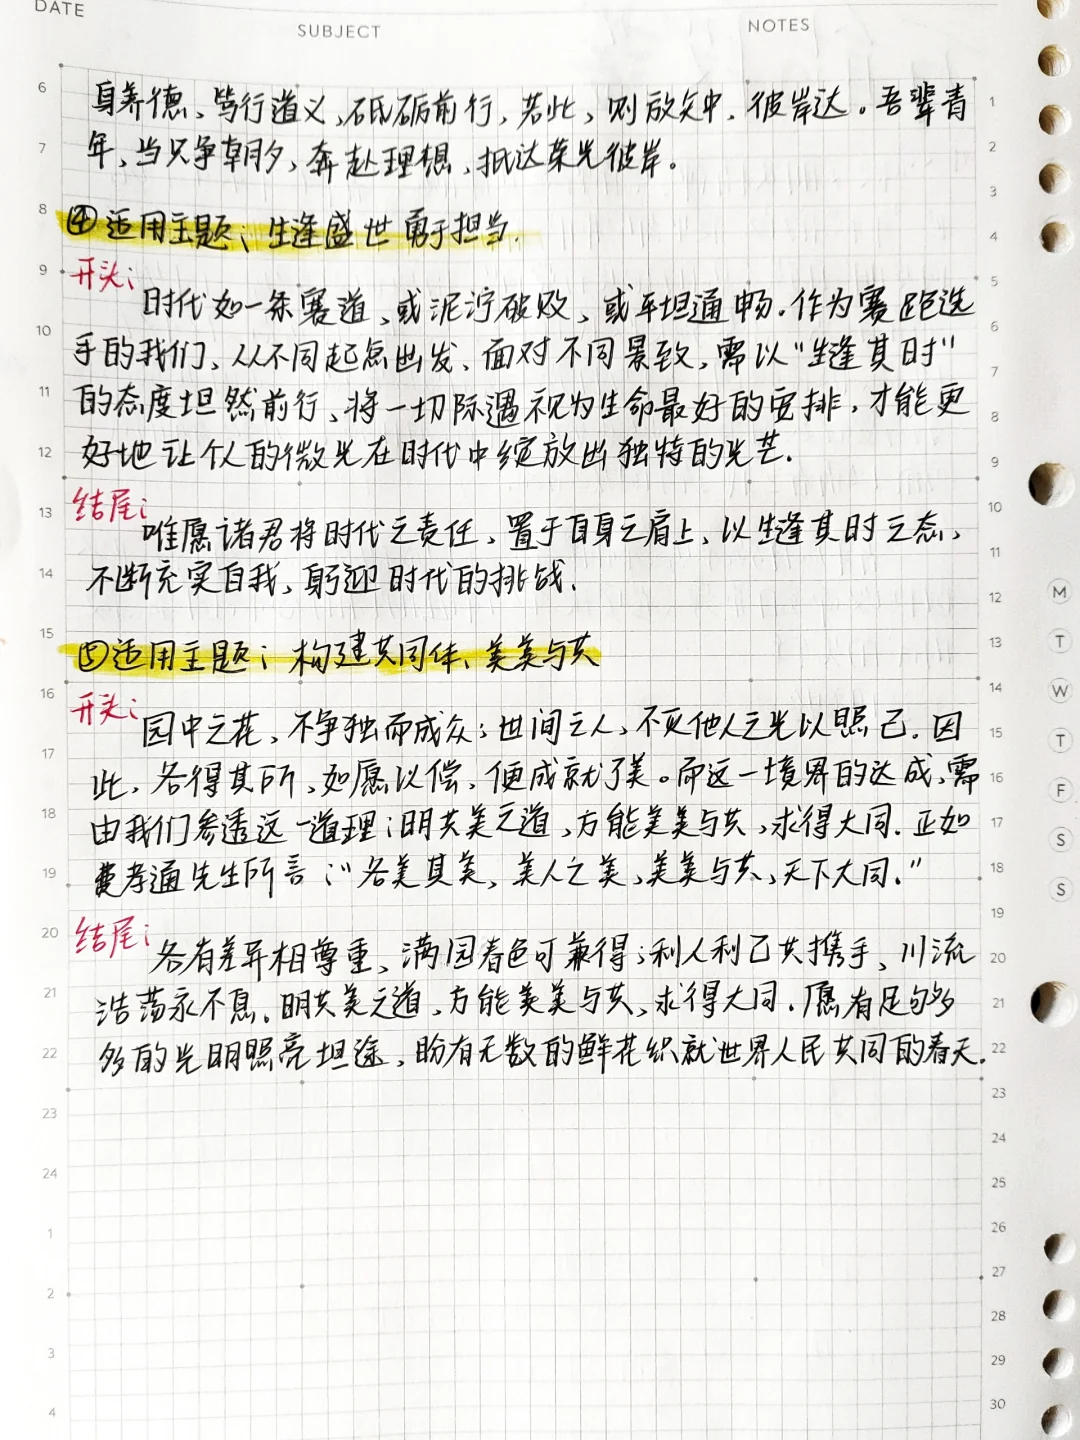 DATE
SUBJECT
NOTES
身养德、笃行道义、砥砺前行，若此，则放矢中，彼岸达。吾辈青
年，当只争朝夕，奔赴理想，抵达荣光彼岸。
④适用主题：生逢盛世 勇于担当.
开头：
时代如一条赛道，或泥泞破败，或平坦通畅.作为赛跑选
手的我们，从不同起点出发，面对不同景致，需以“生逢其时”
的态度坦然前行，将一切际遇视为生命最好的安排，才能更
好地让个人的微光在时代中绽放出独特的光芒.
结尾：
唯愿诸君将时代之责任，置于自身之肩上，以生逢其时之态，
不断充实自我，躬迎时代的挑战.
⑤适用主题：构建共同体、美美与共
开头：
园中之花，不争独而成众；世间之人，不灭他人之光以照己.因
此，各得其所，如愿以偿，便成就了美。而这一境界的达成，需
由我们参透这一道理：明共美之道，方能美美与共，求得大同.正如
费孝通先生所言：“各美其美，美人之美，美美与共，天下大同.”
结尾：
各有差异相尊重，满园春色可兼得；利人利己共携手，川流
浩荡永不息.明共美之道，方能美美与共，求得大同.愿有足够多
多的光明照亮坦途，盼有无数的鲜花织就世界人民共同的春天.
6
7
8
9
10
11
12
13
14
15
16
17
18
19
20
21
22
23
24
1
2
3
4
1
2
3
4
5
6
7
8
9
10
11
12
13
14
15
16
17
18
19
20
21
22
23
24
25
26
27
28
29
30
M
T
W
T
F
S
S